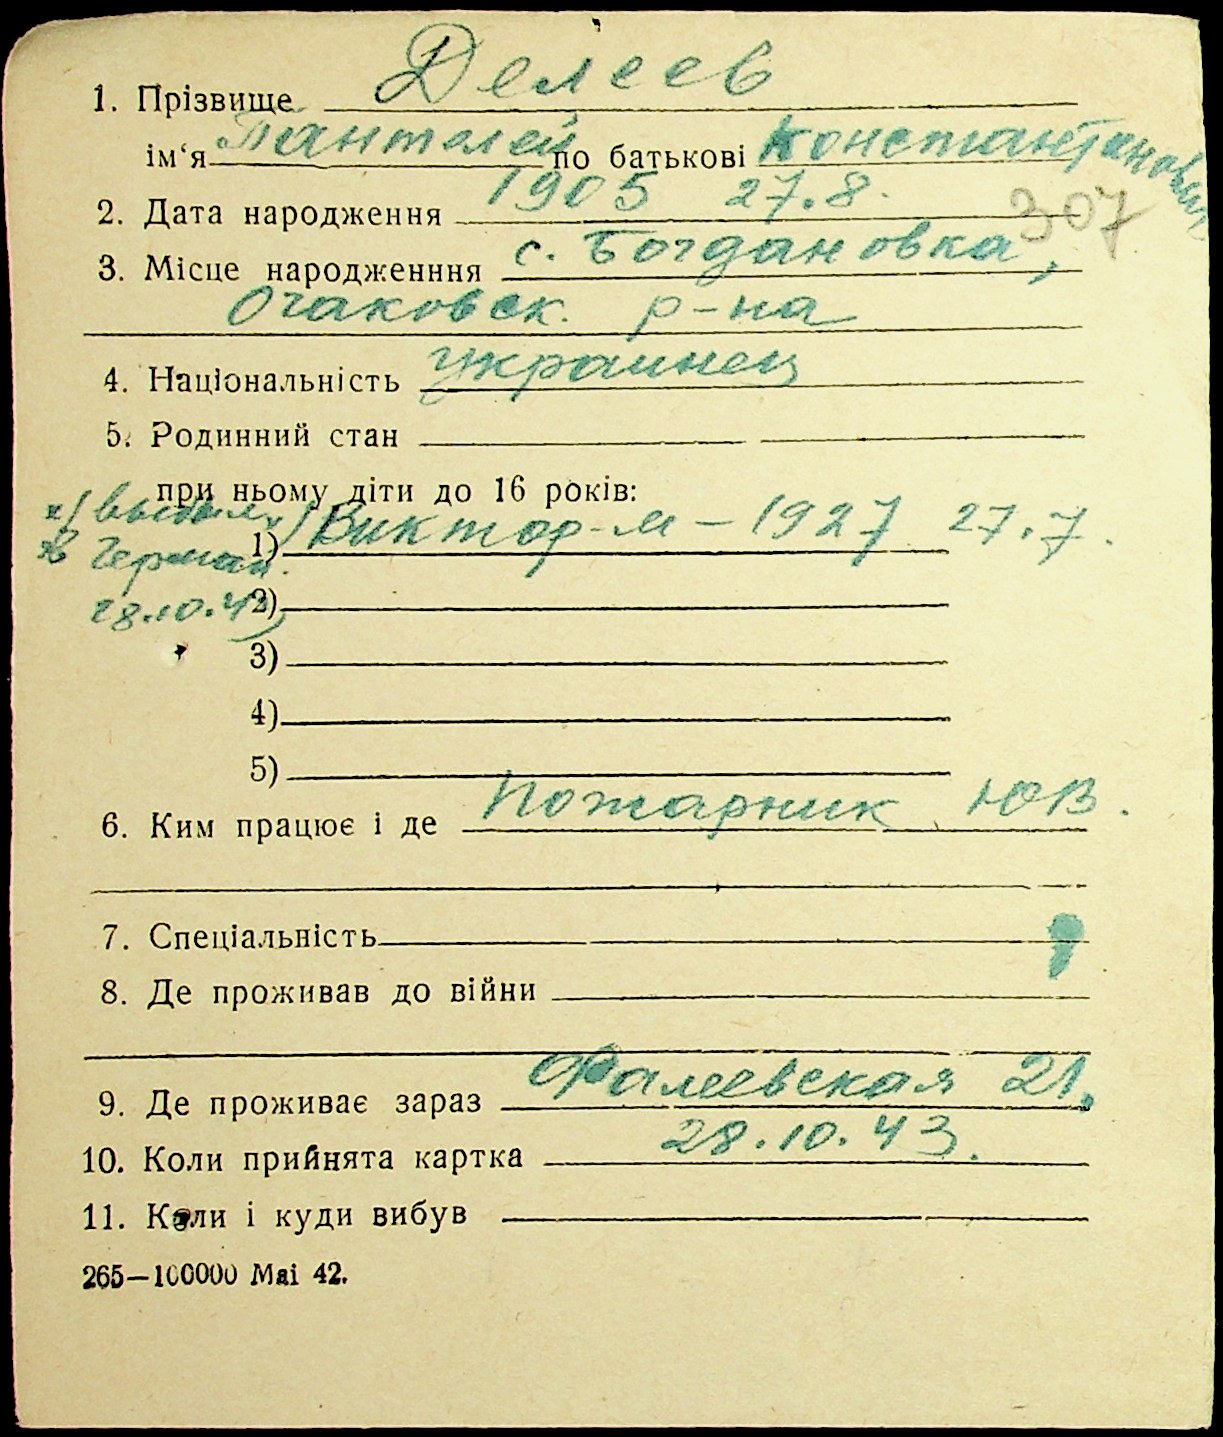 1. Прізвище Делеев
ім‘я Пантелей по батькові Константинович
2. Дата народження 1905 27.8.
307
3. Місце народженння с. Богдановка,
Очаковск. р-на
4. Національність украинец
5. Родинний стан
при ньому діти до 16 років:
1) Виктор-м – 1927 27.7.
в Герман.
28.10.43
2)
3)
4)
5)
6. Ким працює і де Пожарник ЮВ.
7. Спеціальність
8. Де проживав до війни
9. Де проживає зараз Фалеевская 21.
10. Коли прийнята картка 28.10.43.
11. Коли і куди вибув
265—100000 Маі 42.